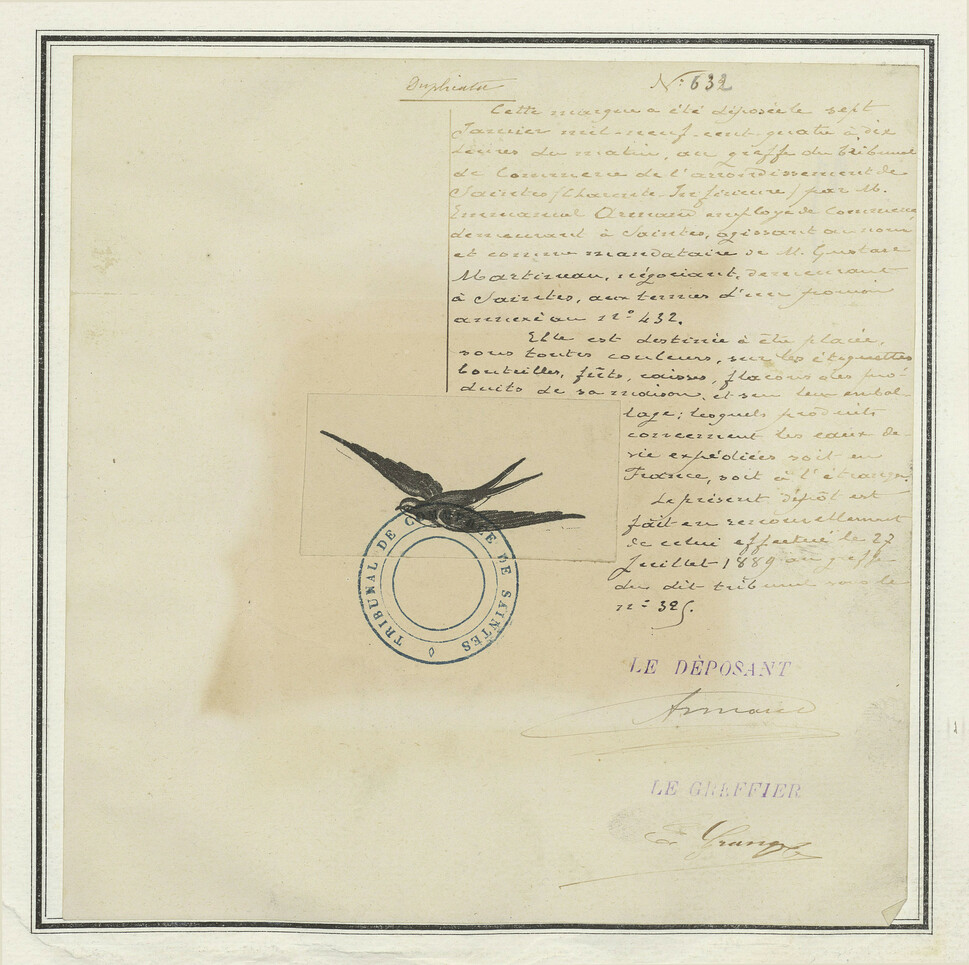 Duplicata
N° 632
Cette marque a été déposée le sept
Janvier mil-neuf-cent-quatre à dix
heures du matin, au greffe du Tribunal
de Commerce de l'arrondissement de
Saintes (Charente-Inférieure) par M.
Emmanuel Armand employé de commerce
demeurant à Saintes, agissant au nom
et comme mandataire de M. Gustave
Martineau, négociant, demeurant
à Saintes, aux termes d'un pouvoir
annexé au n° 432.
Elle est destinée à être placée,
sous toutes couleurs, sur les étiquettes
bouteilles, fûts, caisses, flacons des pro-
duits de sa maison, et sur leur embal-
lage; lesquels produits
concernent les eaux-de-
vie expédiées soit en
France, soit à l'étranger.
Le présent dépôt est
fait en renouvellement
de celui effectué le 27
Juillet 1889 au greffe
du dit tribunal sous le
n° 325.
TRIBUNAL DE COMMERCE DE SAINTES
LE DÉPOSANT
Armand
LE GREFFIER